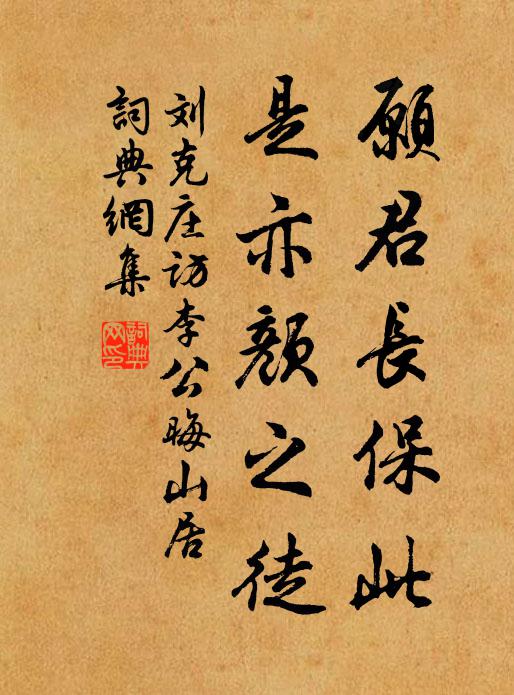 願君長保此
是亦顔之徒
刘克庄訪李公晦山居
詞典網集
詞典
网印